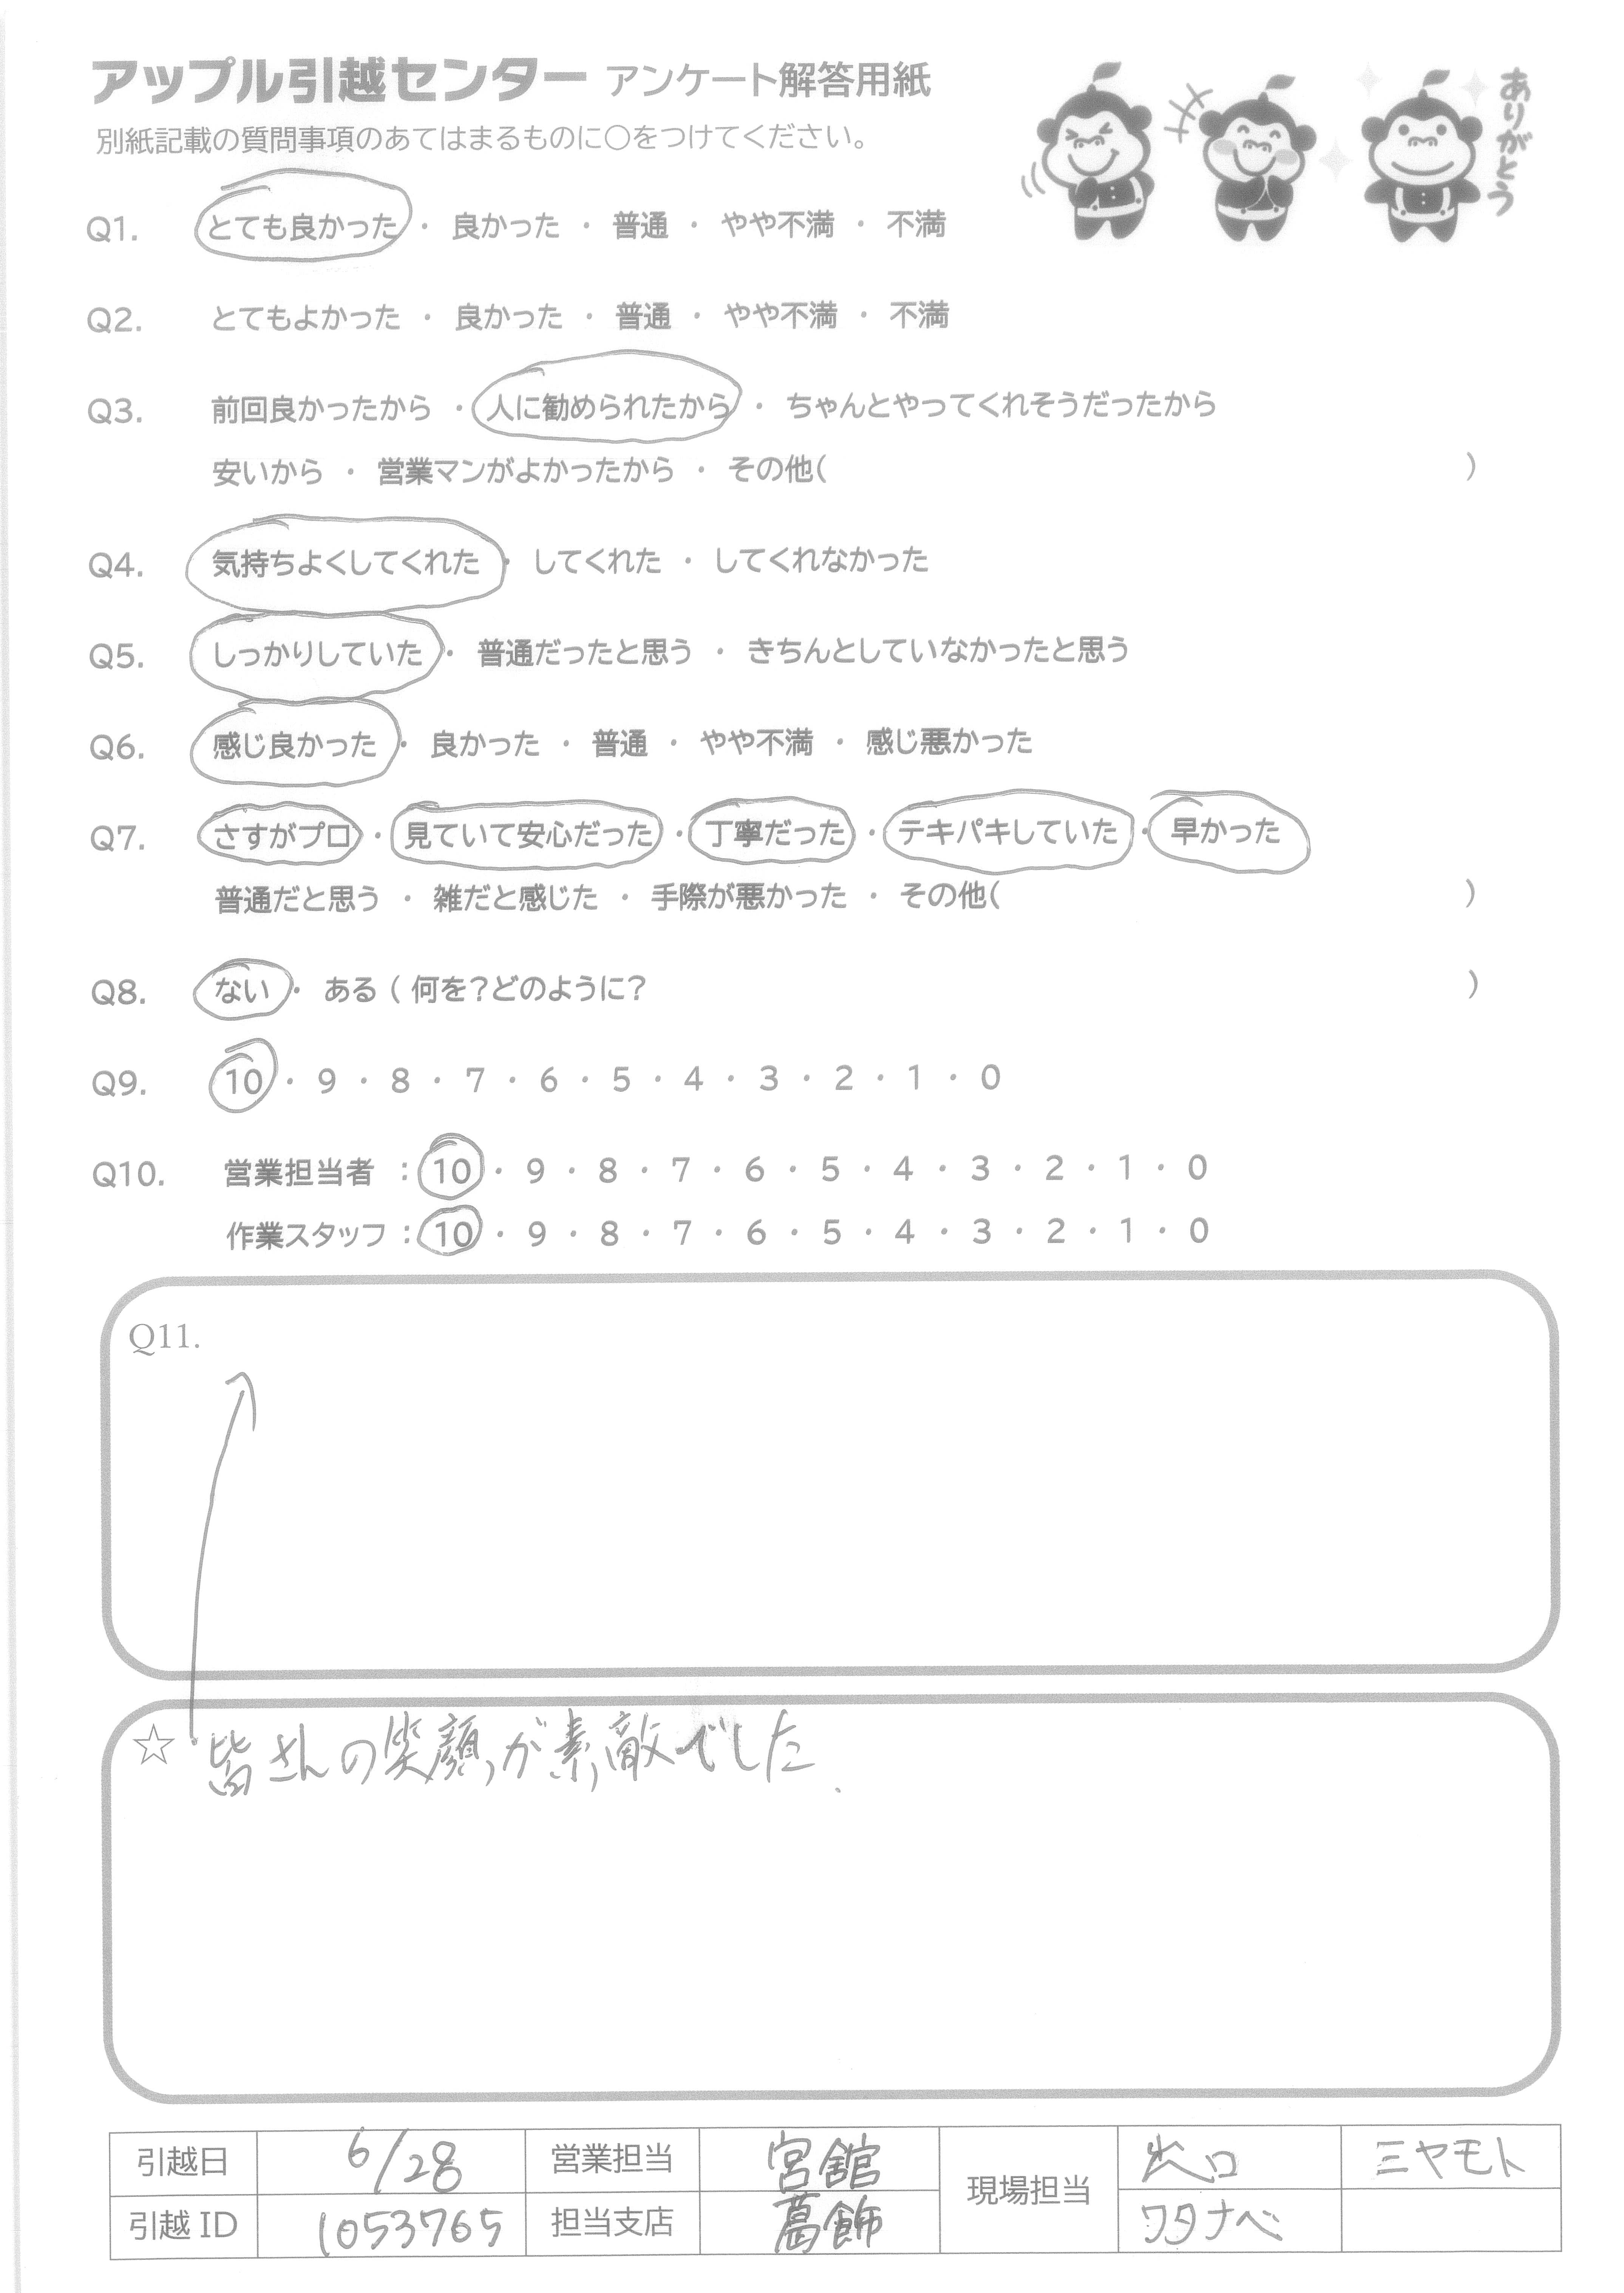 アップル引越センター アンケート解答用紙
ありがとう
別紙記載の質問事項のあてはまるものに○をつけてください。
Q1. とても良かった ・ 良かった ・ 普通 ・ やや不満 ・ 不満
Q2. とてもよかった ・ 良かった ・ 普通 ・ やや不満 ・ 不満
Q3. 前回良かったから ・ 人に勧められたから ・ ちゃんとやってくれそうだったから
安いから ・ 営業マンがよかったから ・ その他( )
Q4. 気持ちよくしてくれた ・ してくれた ・ してくれなかった
Q5. しっかりしていた ・ 普通だったと思う ・ きちんとしていなかったと思う
Q6. 感じ良かった ・ 良かった ・ 普通 ・ やや不満 ・ 感じ悪かった
Q7. さすがプロ ・ 見ていて安心だった ・ 丁寧だった ・ テキパキしていた ・ 早かった
普通だと思う ・ 雑だと感じた ・ 手際が悪かった ・ その他( )
Q8. ない ・ ある ( 何を?どのように? )
Q9. 10 ・ 9 ・ 8 ・ 7 ・ 6 ・ 5 ・ 4 ・ 3 ・ 2 ・ 1 ・ 0
Q10. 営業担当者 : 10 ・ 9 ・ 8 ・ 7 ・ 6 ・ 5 ・ 4 ・ 3 ・ 2 ・ 1 ・ 0
作業スタッフ : 10 ・ 9 ・ 8 ・ 7 ・ 6 ・ 5 ・ 4 ・ 3 ・ 2 ・ 1 ・ 0
Q11.
☆ 皆さんの笑顔が素敵でした.
引越日 6/28 営業担当 宮舘 現場担当 出口 ミヤモト
引越 ID 1053765 担当支店 葛飾 ワタナベ